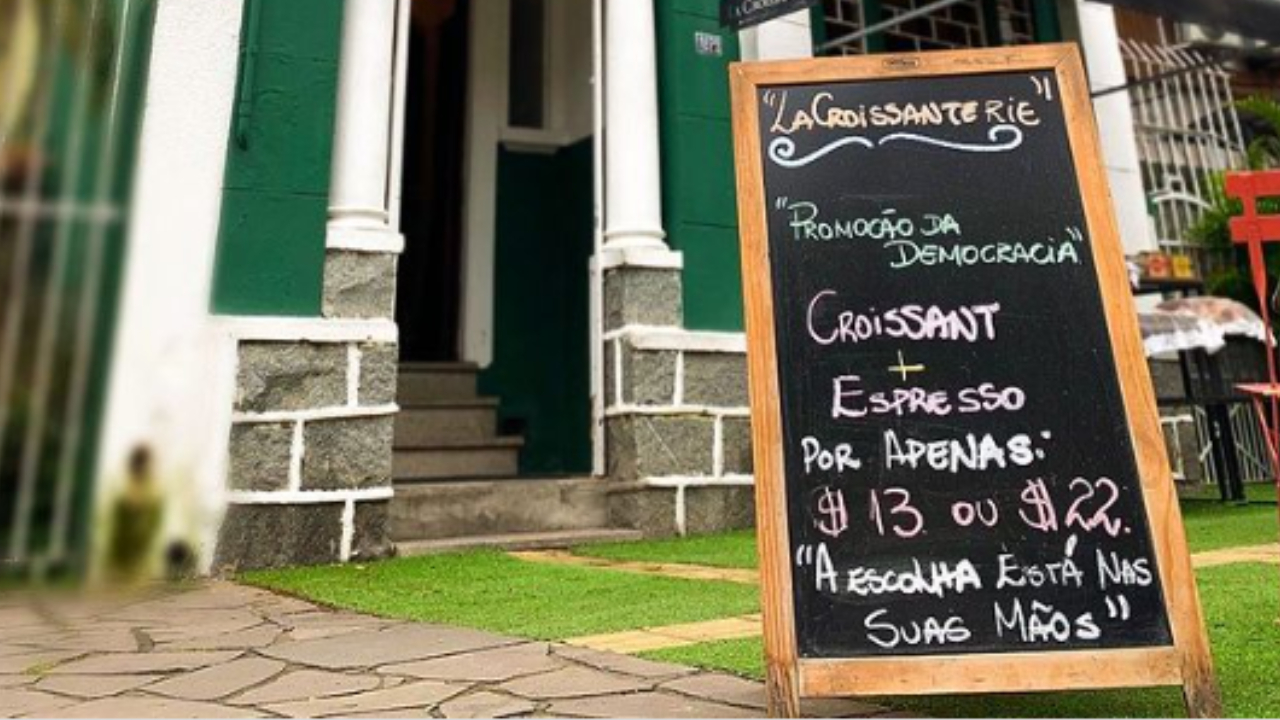 "LaCroissanterie"
"Promoção da
Democracia"
Croissant
+
Espresso
Por Apenas:
$ 13 ou $ 22.
"A escolha Está Nas
Suas Mãos"